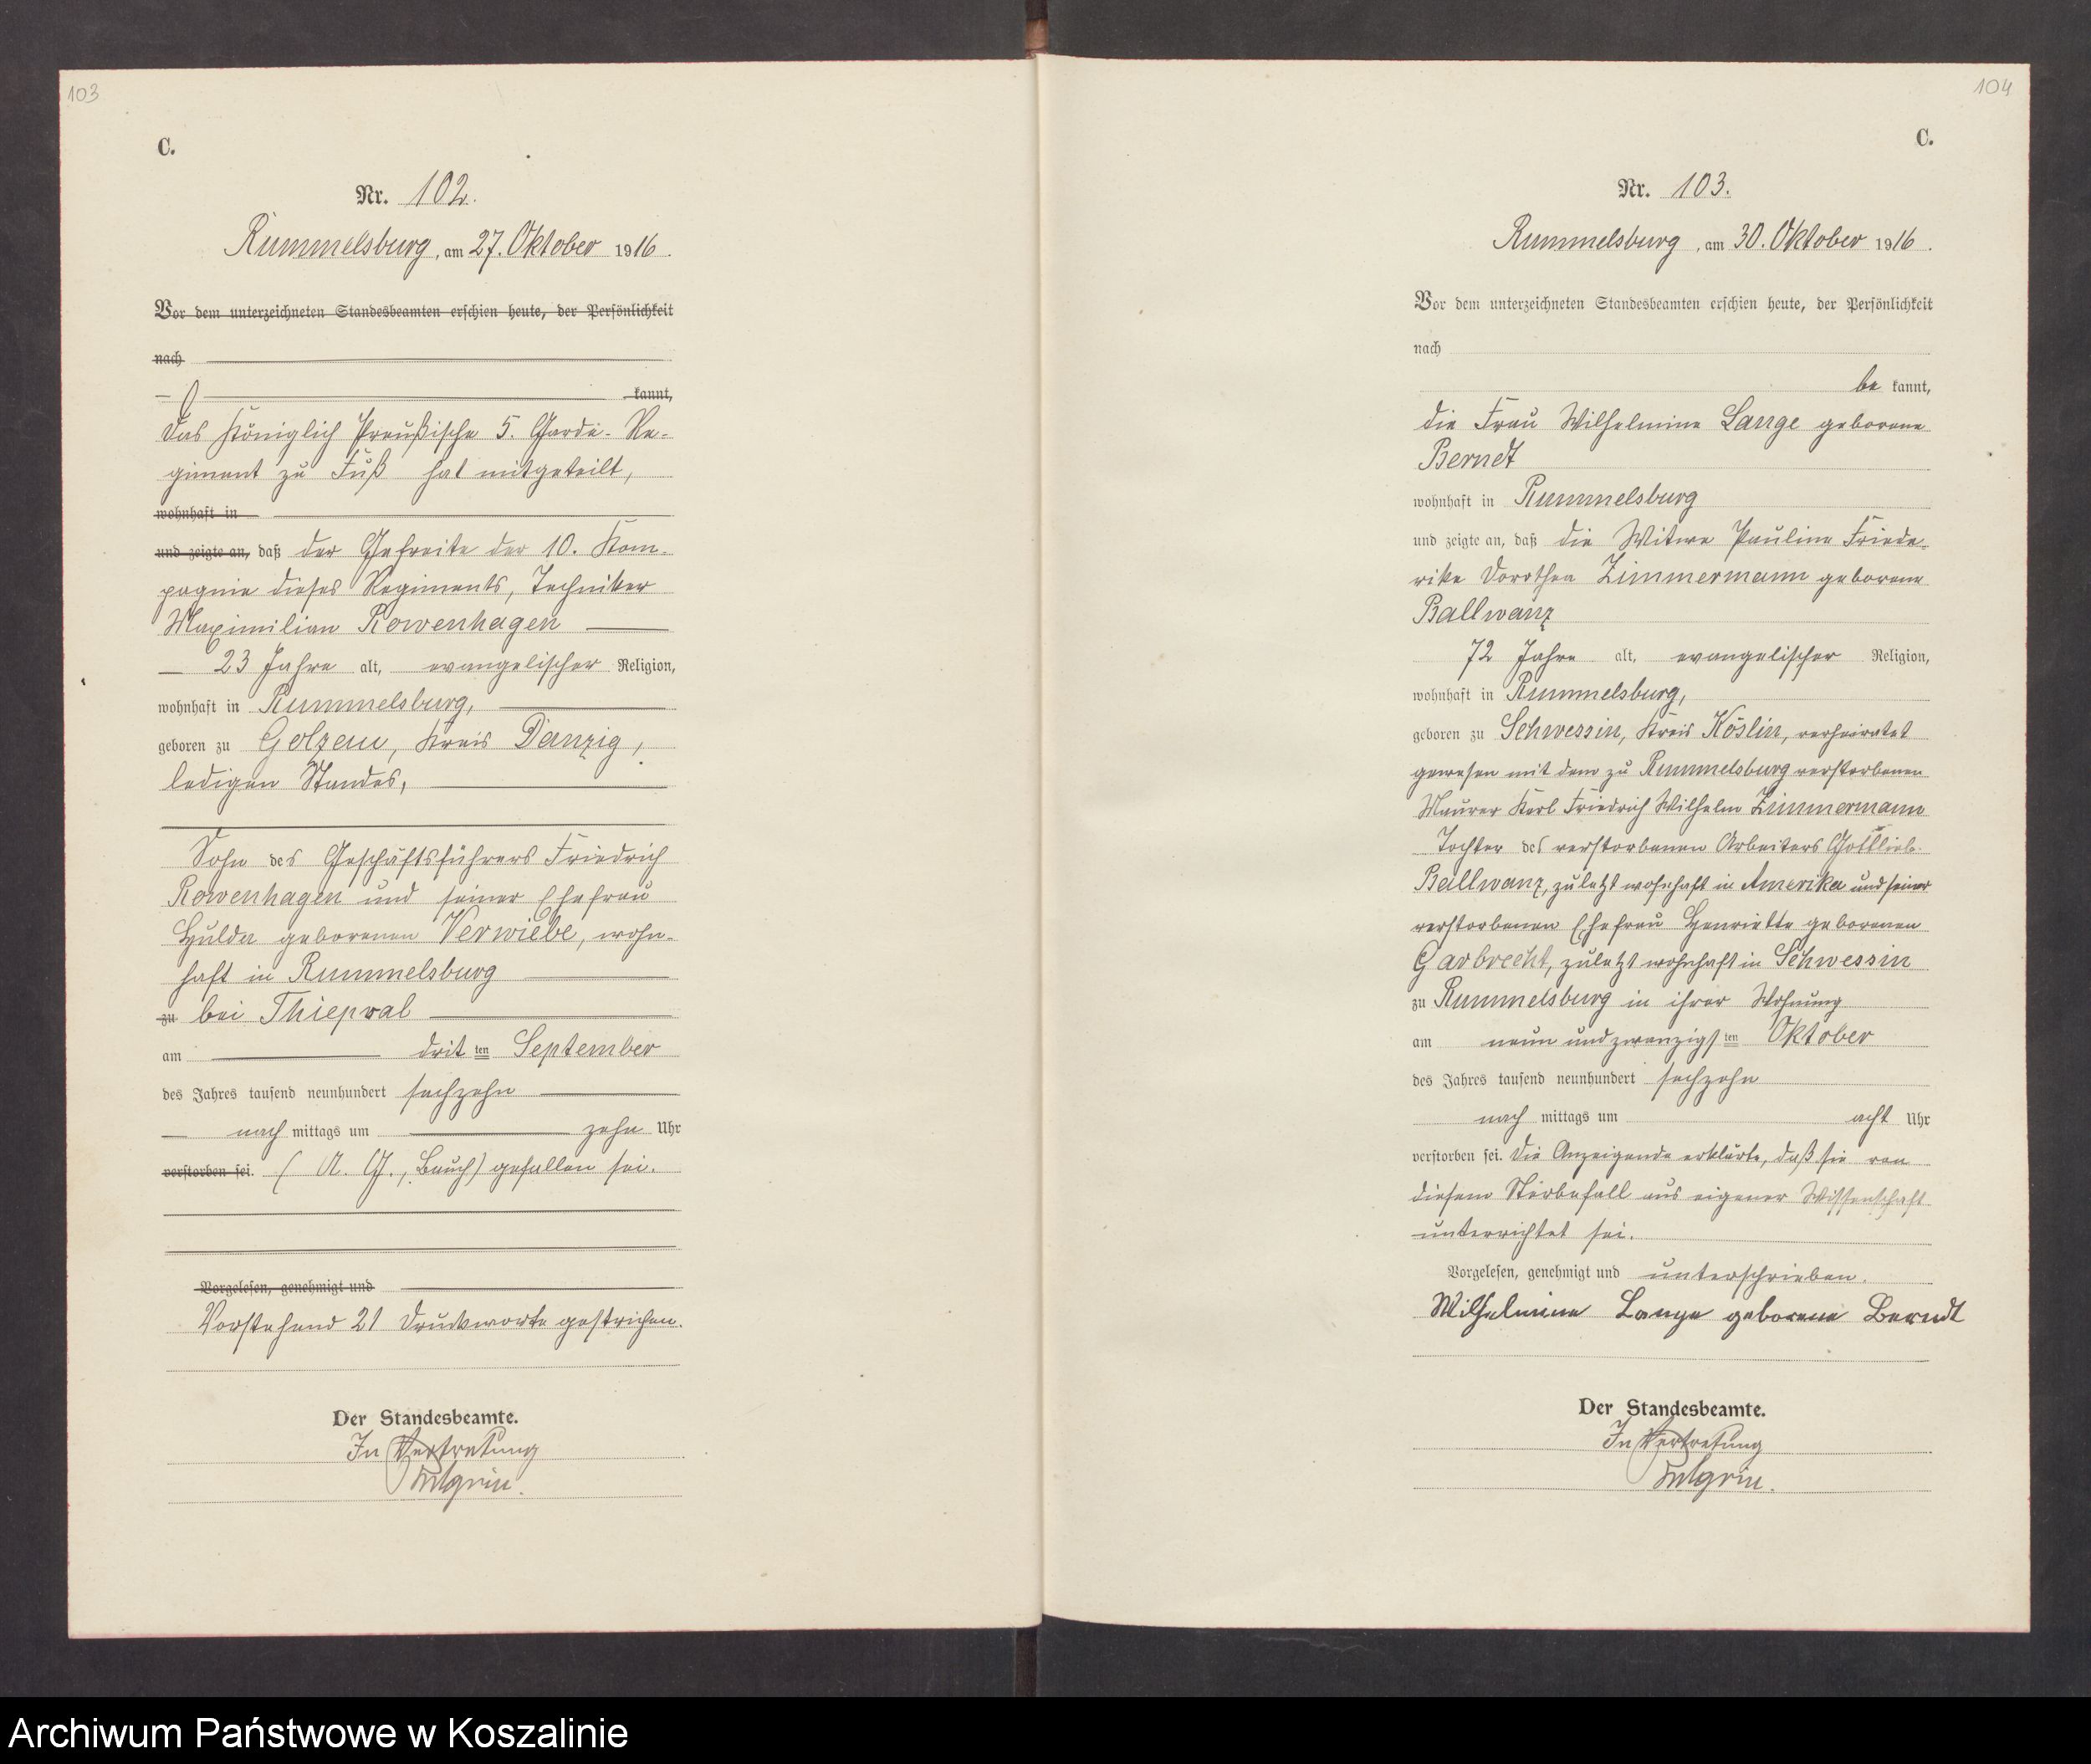 103
C.
Nr. 102.
Rummelsburg, am 27. Oktober 1916.
Vor dem unterzeichneten Standesbeamten erschien heute, der Persönlichkeit
nach
kannt,
das Königlich Preußische 5. Garde-Re-
giment zu Fuß hat mitgeteilt,
wohnhaft in
und zeigte an, daß der Gefreite der 10. Kom-
pagnie dieses Regiments, Techniker
Maximilian Rowenhagen
23 Jahre alt, evangelischer Religion,
wohnhaft in Rummelsburg,
geboren zu Golzau, Kreis Danzig,
ledigen Standes,
Sohn des Geschäftsführers Friedrich
Rowenhagen und seiner Ehefrau
Hulda geborenen Verwiebe, wohn-
haft in Rummelsburg
zu bei Thiepval
am dritten September
des Jahres tausend neunhundert sechzehn
nach mittags um zehn Uhr
verstorben sei. (A. G., Bauch) gefallen sei.
Vorgelesen, genehmigt und
Vorstehend 21 Druckworte gestrichen.
Der Standesbeamte.
In Vertretung
104
C.
Nr. 103.
Rummelsburg, am 30. Oktober 1916.
Vor dem unterzeichneten Standesbeamten erschien heute, der Persönlichkeit
nach
be kannt,
die Frau Wilhelmine Lange geborene
Berndt
wohnhaft in Rummelsburg
und zeigte an, daß die Witwe Pauline Friede-
rike Dorothea Zimmermann geborene
Ballwanz
72 Jahre alt, evangelischer Religion,
wohnhaft in Rummelsburg,
geboren zu Schwessin, Kreis Köslin, verheiratet
gewesen mit dem zu Rummelsburg verstorbenen
Maurer Karl Friedrich Wilhelm Zimmermann
Tochter des verstorbenen Arbeiters Gottlieb
Ballwanz, zuletzt wohnhaft in Amerika und seiner
verstorbenen Ehefrau Henriette geborenen
Garbrecht, zuletzt wohnhaft in Schwessin
zu Rummelsburg in ihrer Wohnung
am neun und zwanzigsten Oktober
des Jahres tausend neunhundert sechzehn
nach mittags um acht Uhr
verstorben sei. Die Anzeigende erklärte, daß sie von
diesem Sterbefall aus eigener Wissenschaft
unterrichtet sei.
Vorgelesen, genehmigt und unterschrieben.
Wilhelmine Lange geborene Berndt
Der Standesbeamte.
In Vertretung
Archiwum Państwowe w Koszalinie